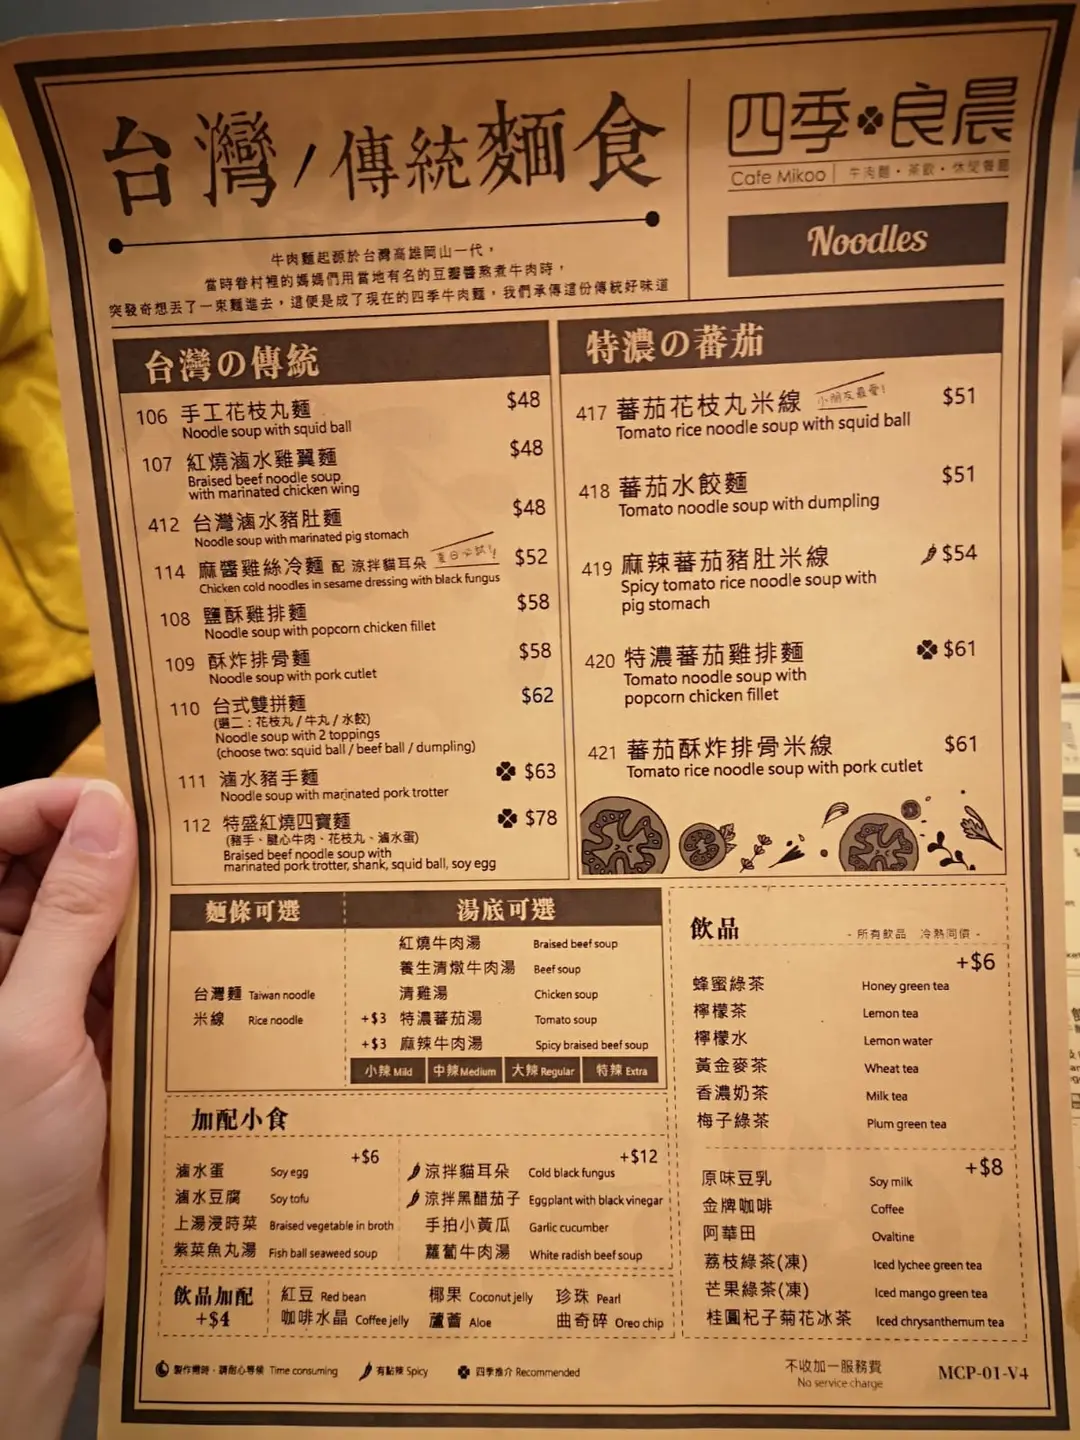 台灣/傳統麵食
四季良晨
Cafe Mikoo | 牛肉麵・茶飲・休閒餐廳
Noodles
牛肉麵起源於台灣高雄岡山一代，
當時眷村裡的媽媽們用當地有名的豆瓣醬熬煮牛肉時，
突發奇想丟了一束麵進去，這便是成了現在的四季牛肉麵，我們承傳這份傳統好味道
台灣の傳統
106 手工花枝丸麵 $48
Noodle soup with squid ball
107 紅燒滷水雞翼麵 $48
Braised beef noodle soup
with marinated chicken wing
412 台灣滷水豬肚麵 $48
Noodle soup with marinated pig stomach
114 麻醬雞絲冷麵 配 涼拌貓耳朵 夏日必試! $52
Chicken cold noodles in sesame dressing with black fungus
108 鹽酥雞排麵 $58
Noodle soup with popcorn chicken fillet
109 酥炸排骨麵 $58
Noodle soup with pork cutlet
110 台式雙拼麵 $62
(選二：花枝丸/牛丸/水餃)
Noodle soup with 2 toppings
(choose two: squid ball / beef ball / dumpling)
111 滷水豬手麵 $63
Noodle soup with marinated pork trotter
112 特盛紅燒四寶麵 $78
(豬手、腱心牛肉、花枝丸、滷水蛋)
Braised beef noodle soup with
marinated pork trotter, shank, squid ball, soy egg
特濃の蕃茄
417 蕃茄花枝丸米線 小朋友最愛! $51
Tomato rice noodle soup with squid ball
418 蕃茄水餃麵 $51
Tomato noodle soup with dumpling
419 麻辣蕃茄豬肚米線 $54
Spicy tomato rice noodle soup with
pig stomach
420 特濃蕃茄雞排麵 $61
Tomato noodle soup with
popcorn chicken fillet
421 蕃茄酥炸排骨米線 $61
Tomato rice noodle soup with pork cutlet
麵條可選
台灣麵 Taiwan noodle
米線 Rice noodle
湯底可選
紅燒牛肉湯 Braised beef soup
養生清燉牛肉湯 Beef soup
清雞湯 Chicken soup
+$3 特濃蕃茄湯 Tomato soup
+$3 麻辣牛肉湯 Spicy braised beef soup
小辣 Mild 中辣 Medium 大辣 Regular 特辣 Extra
加配小食
+$6
滷水蛋 Soy egg
滷水豆腐 Soy tofu
上湯浸時菜 Braised vegetable in broth
紫菜魚丸湯 Fish ball seaweed soup
+$12
涼拌貓耳朵 Cold black fungus
涼拌黑醋茄子 Eggplant with black vinegar
手拍小黃瓜 Garlic cucumber
蘿蔔牛肉湯 White radish beef soup
飲品加配
+$4
紅豆 Red bean 椰果 Coconut jelly 珍珠 Pearl
咖啡水晶 Coffee jelly 蘆薈 Aloe 曲奇碎 Oreo chip
飲品
- 所有飲品 冷熱同價 -
+$6
蜂蜜綠茶 Honey green tea
檸檬茶 Lemon tea
檸檬水 Lemon water
黃金麥茶 Wheat tea
香濃奶茶 Milk tea
梅子綠茶 Plum green tea
+$8
原味豆乳 Soy milk
金牌咖啡 Coffee
阿華田 Ovaltine
荔枝綠茶(凍) Iced lychee green tea
芒果綠茶(凍) Iced mango green tea
桂圓杞子菊花冰茶 Iced chrysanthemum tea
製作需時，請耐心等候 Time consuming 有點辣 Spicy 四季推介 Recommended
不收加一服務費
No service charge
MCP-01-V4